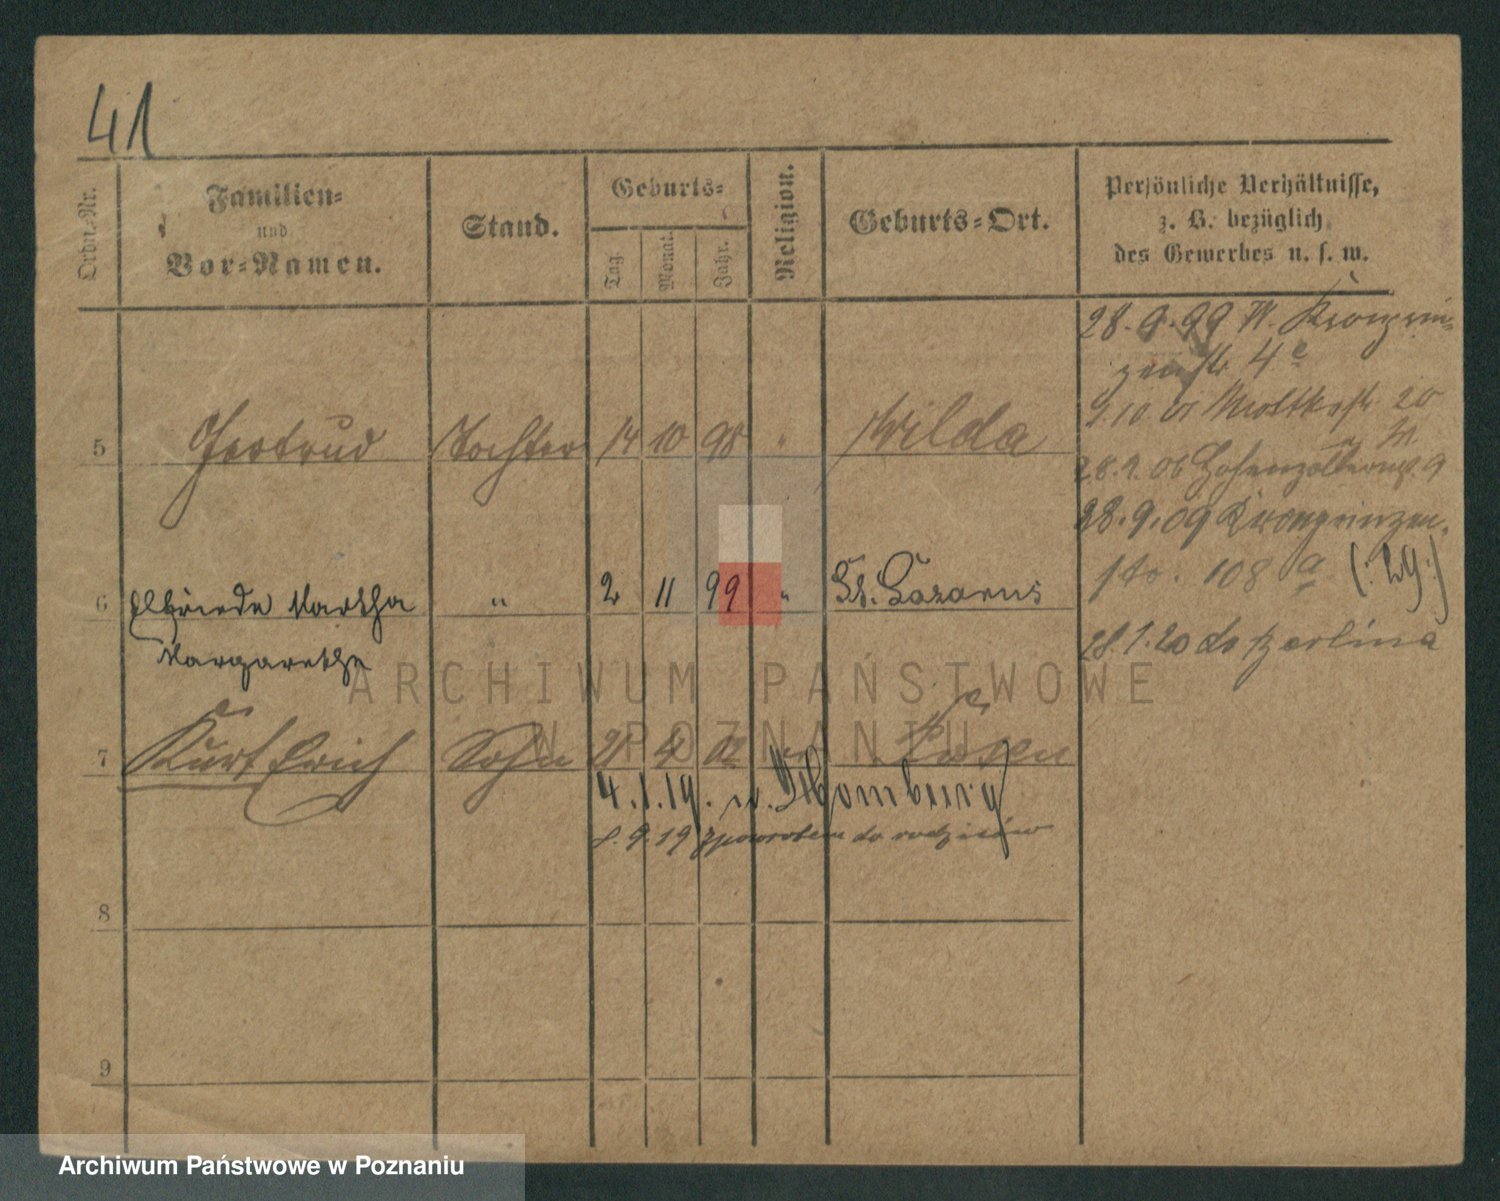 41
Ordn.-Nr.
Familien-
und
Vor-Namen.
Stand.
Geburts-
Tag.
Monat.
Jahr.
Religion.
Geburts-Ort.
Persönliche Verhältnisse,
z. B. bezüglich
des Gewerbes u. s. w.
28.9.99 W. Kronprin-
zenstr 4 c
1.10.01 Moltkestr 20
28.9.06 Hohenzollernstr. 9
28.9.09 Kronprinzen-
str. 108 a (:29:)
28.1.20 do Berlina
5 Gertrud Tochter 14 10 98 " Wilda
6 Elfriede Martha " 2 11 99 " St. Lazarus
Margarethe
7 Kurt Erich Sohn 21 4 02 " Posen
4.1.19. n. Homburg
9.19 zpowrotem do rodziców
8
9
ARCHIWUM PAŃSTWOWE
W POZNANIU
Archiwum Państwowe w Poznaniu